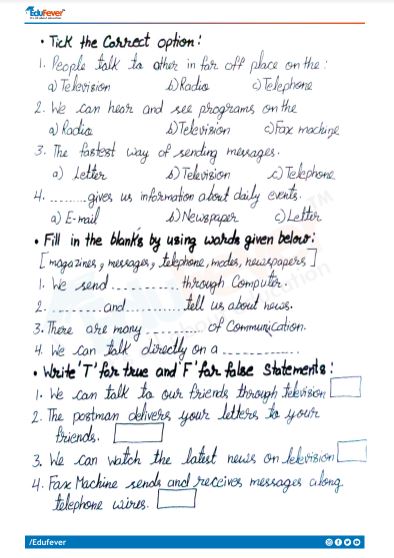 EduFever
• Tick the Correct option:
1. People talk to other in far off place on the:
a) Television b) Radio c) Telephone
2. We can hear and see programs on the
a) Radio b) Television c) Fax machine
3. The fastest way of sending messages.
a) Letter b) Television c) Telephone
4. ......... gives us information about daily events.
a) E-mail b) Newspaper c) Letter
• Fill in the blanks by using words given below:
[magazines, messages, telephone, modes, newspapers]
1. We send ............ through Computer.
2. ......... and ............ tell us about news.
3. There are many ............ of Communication.
4. We can talk directly on a ...............
• Write 'T' for true and 'F' for false Statements:
1. We can talk to our friends through television
2. The postman delivers your letters to your
friends.
3. We can watch the latest news on television
4. Fax Machine sends and receives messages along
telephone wires.
/Edufever